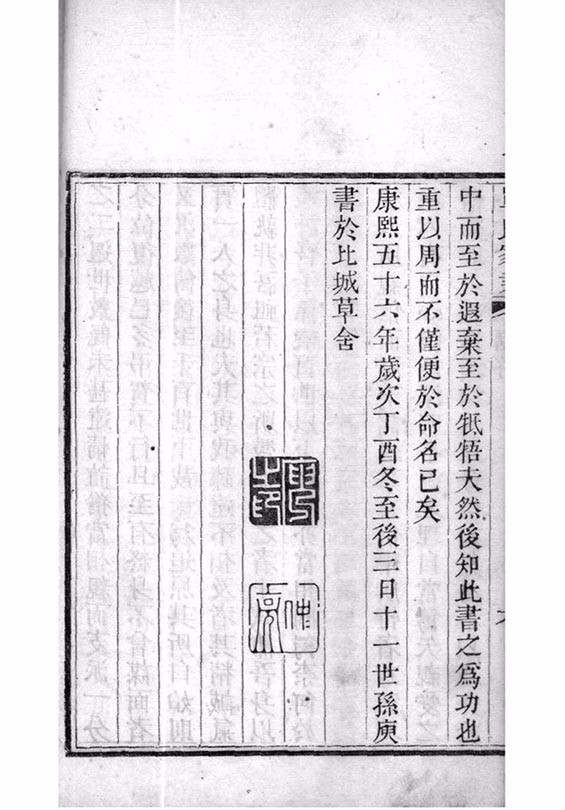 中而至於遐棄至於牴牾夫然後知此書之為功也
重以周而不僅便於命名已矣
康熙五十六年歲次丁酉冬至後三日十一世孫庾
書於比城草舍
庾之印
仲亮